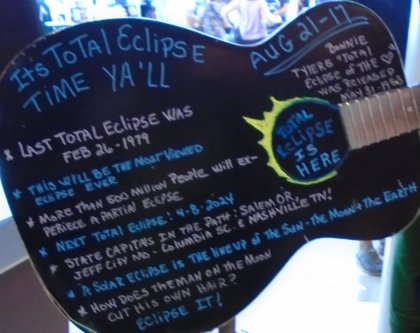 It's Total Eclipse
Time Ya'll
Aug 21-17
Bonnie
Tyler's "Total
Eclipse of the ♡"
was released
May 31-1983
Total
Eclipse
is
Here
* Last Total Eclipse was
Feb 26-1979
* This will be the most viewed
eclipse ever
* More than 500 million people will ex-
periece a partin' eclipse
* Next Total Eclipse: 4-8-2024
* State capitals in the path: Salem OR,
Jeff City Mo: Columbia SC. & Nashville TN!
* A solar eclipse is the line up of the Sun-the Moon & the Earth
* How does the man on the moon
cut his own hair?
Eclipse it!